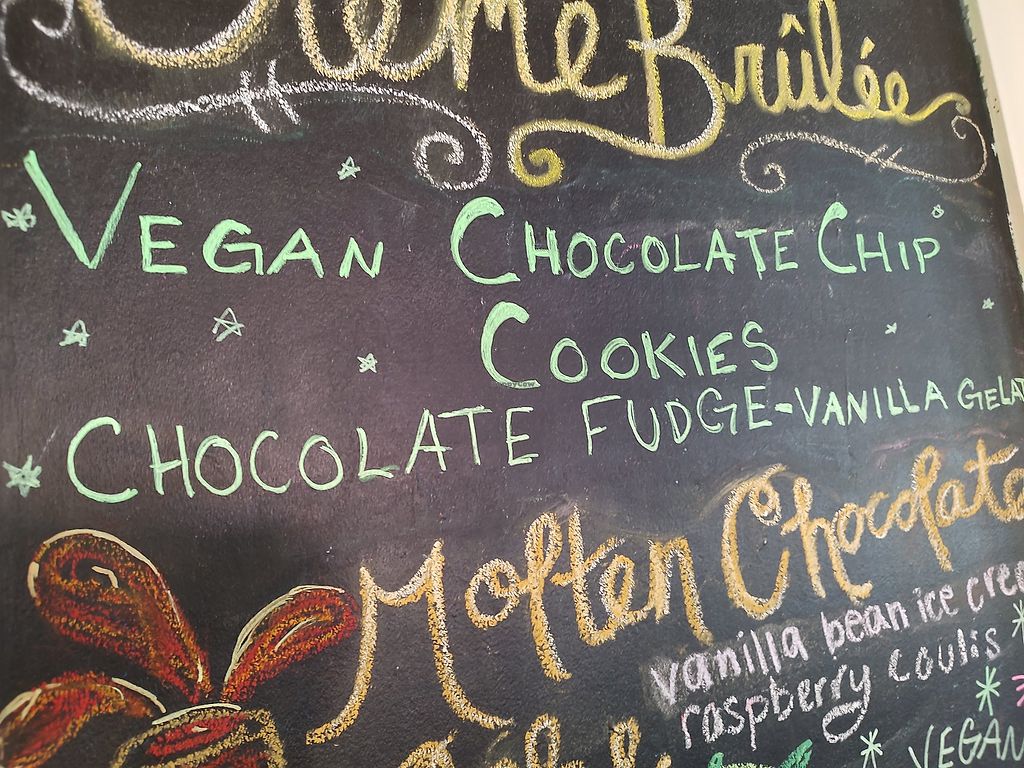 Crème Brûlée
VEGAN CHOCOLATE CHIP
COOKIES
CHOCOLATE FUDGE-VANILLA GELAT
Molten Chocolate
vanilla bean ice crea
raspberry coulis
VEGAN